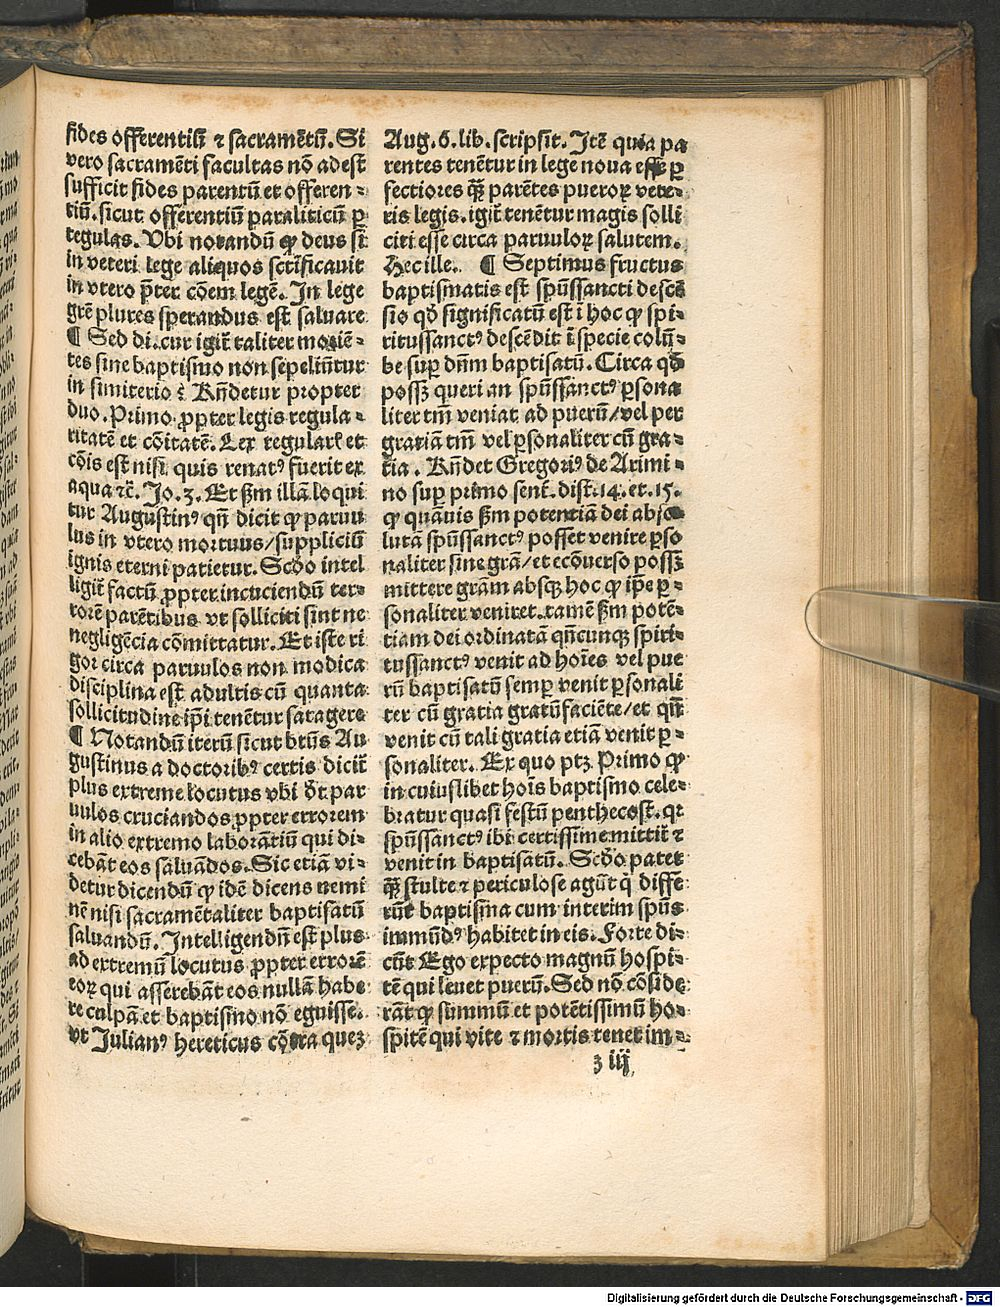 fides offerentiū ⁊ sacramētū. Si
vero sacramēti facultas nō adest
sufficit fides parentū et offeren⸗
tiū. sicut offerentiū paraliticū ꝑ
tegulas. Vbi notandū ꝙ deus sit̄
in veteri lege aliquos sctīficauit
in vtero p̄ter cōem legē. In lege
grē plures sperandus est saluare
¶ Sed di. cur igit̄ taliter moriē⸗
tes sine baptismo non sepeliūtur
in simiterio ⁊̄ Rn̄detur propter
duo. Primo ꝓpter legis regula⸗
ritatē et cōitatē. Lex regularꝭ et
cōis est nisi quis renatꝰ fuerit ex
aqua ⁊c̄. Jo. 3. Et ẜm illā loqui
tur Augustinꝰ qn̄ dicit ꝙ paruu
lus in vtero mortuus/suppliciū
ignis eterni patietur. Scd̄o intel
ligit̄ factū ꝓpter incuciendū ter⸗
rorē parētibus vt solliciti sint ne
negligēcia cōmittatur. Et iste ri
gor circa paruulos non modica
disciplina est adultis cū quanta
sollicitudine ip̄i tenētur satagere
¶ Notandū iterū sicut btūs Au
gustinus a doctoribꝰ certis dicit̄
plus extreme locutus vbi dt̄ par
uulos cruciandos ꝓpter errorem
in alio extremo laborātiū qui di⸗
cebāt eos saluādos. Sic etiā vi⸗
detur dicendū ꝙ idē dicens nemi
nē nisi sacramētaliter baptisatū
saluandū. Intelligendū est plus
ad extremū locutus ꝓpter errorē
eoꝝ qui asserebāt eos nullā habe
re culpā et baptismo nō eguisse.
vt Julianꝰ hereticus cōtra quez
Aug. 6. lib. scripsit. Itē quia pa
rentes tenētur in lege noua esse ꝑ
fectiores qꝫ̄ parētes pueroꝝ vete⸗
ris legis. igit̄ tenētur magis solli
citi esse circa paruuloꝝ salutem.
Hec ille. ¶ Septimus fructus
baptismatis est spūssancti descē
sio qd̄ significatū est ī hoc ꝙ spi⸗
ritussanctꝰ descēdit ī specie colū⸗
be suꝑ dn̄m baptisatū. Circa qd̄
possꝫ queri an spūssanctꝰ ꝑsona
liter tm̄ veniat ad puerū/vel per
gratiā tm̄ vel ꝑsonaliter cū gra⸗
tia. Rn̄det Gregoriꝰ de Arimi⸗
no suꝑ primo sent̄. dist. 14. et. 15.
ꝙ quāuis ẜm potentiā dei abso
lutā spūssanctꝰ posset venire ꝑso
naliter sine grā/et ecōuerso possꝫ
mittere grām absqꝫ hoc ꝙ ip̄e ꝑ⸗
sonaliter veniret. tamē ẜm potē⸗
tiam dei ordinatā qn̄cunqꝫ spiri⸗
tussanctꝰ venit ad hoīes vel pue
rū baptisatū semꝑ venit ꝑsonali
ter cū gratia gratūfaciēte/et qn̄
venit cū tali gratia etiā venit ꝑ⸗
sonaliter. Ex quo ptꝫ Primo ꝙ
in cuiuslibet hoīs baptismo cele⸗
bratur quasi festū penthecost. qꝛ
spūssanctꝰ ibi certissime mittit̄ ⁊
venit in baptisatū. Scd̄o patet
qꝫ̄ stulte ⁊ periculose agūt q̇ diffe
rūt baptisma cum interim spūs
immūdꝰ habitet in eis. Forte di⸗
cūt Ego expecto magnū hospi⸗
tē qui leuet puerū. Sed nō cōside
rāt ꝙ summū et potētissimū ho⸗
spitē qui vite ⁊ mortis tenet im⸗
z iij
Digitalisierung gefördert durch die Deutsche Forschungsgemeinschaft - DFG